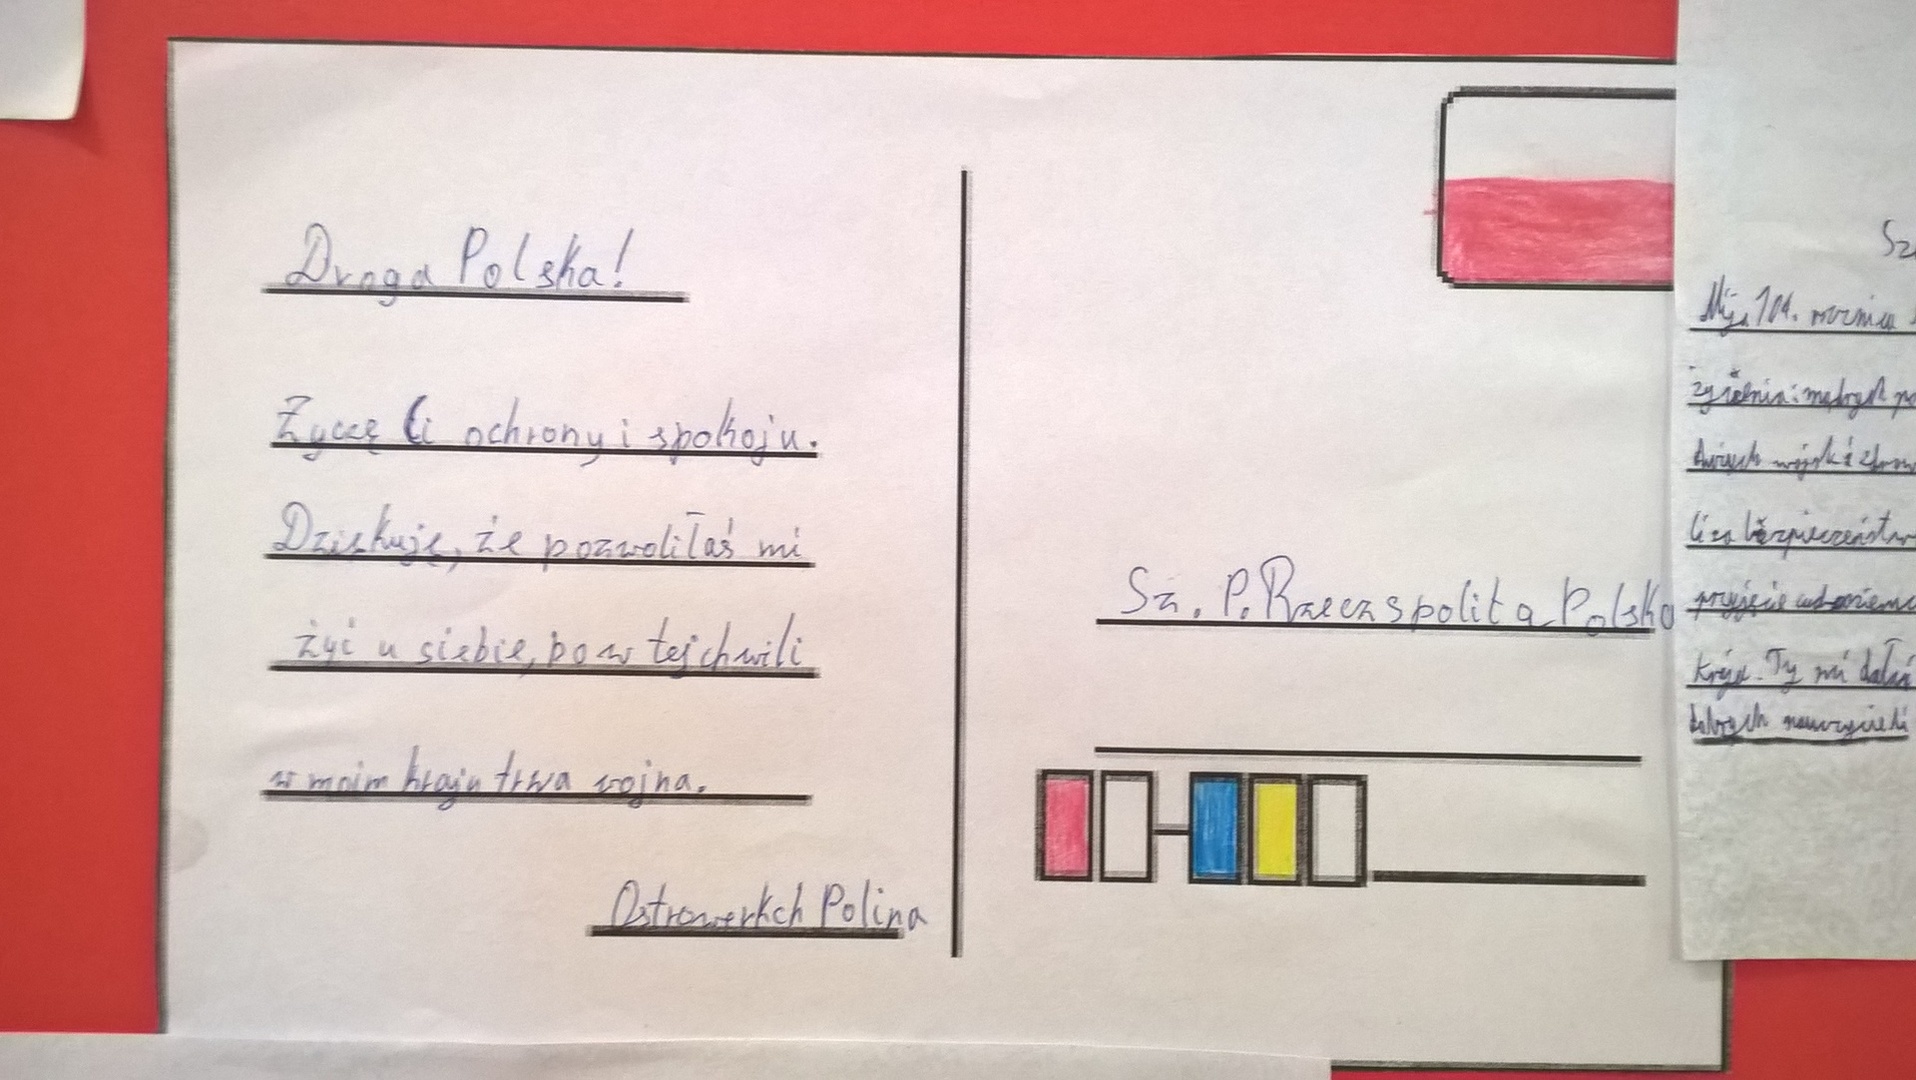 Droga Polska!
Życzę Ci ochrony i spokoju.
Dziękuję, że pozwoliłaś mi
żyć u siebie, bo w tej chwili
w moim kraju trwa wojna.
Ostrowerkch Polina
Sz. P. Rzeczspolita Polska
Sz
Mija 104. rocznica
życzenia: mądrych
wojsk i
bezpieczeństw
przyjęcie
kraju. Ty mi dałaś
dobrych nauczycieli